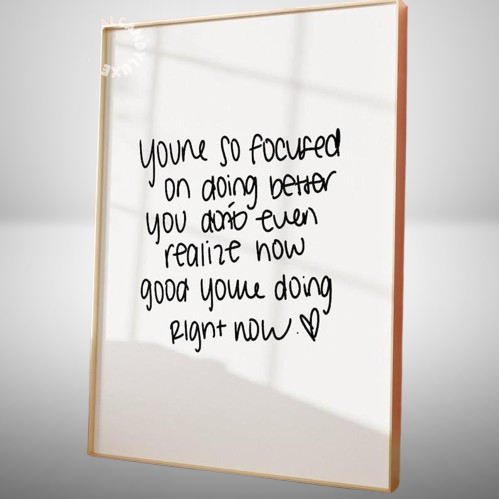 you're so focused
on doing better
you don't even
realize how
good you're doing
right now.♡